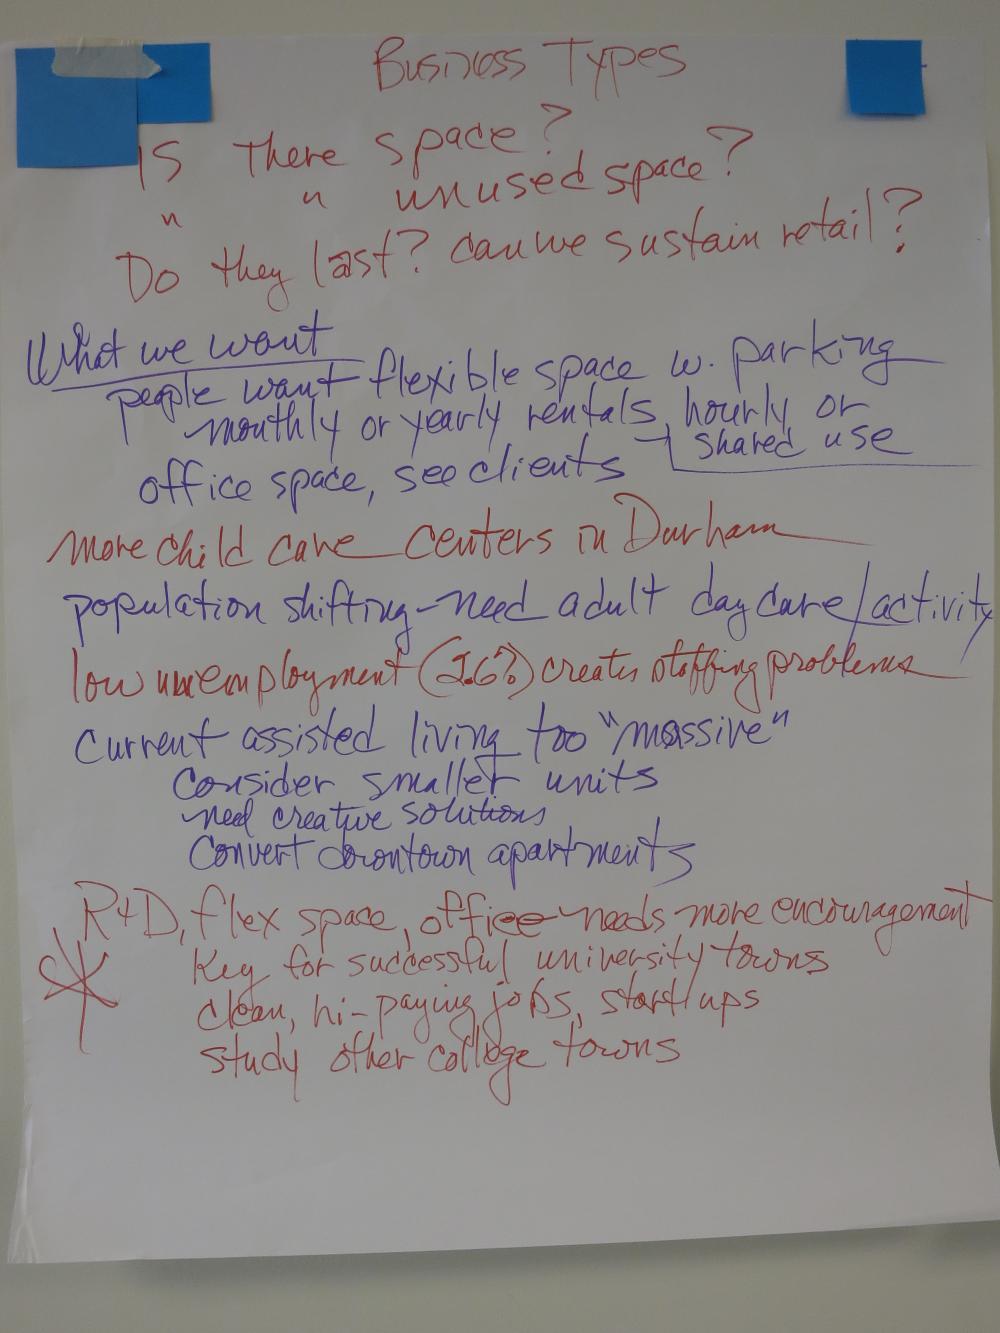 Business Types
Is There space?
" " unused space?
Do they last? can we sustain retail?
What we want
people want flexible space w. parking
monthly or yearly rentals, hourly or
shared use
office space, see clients
more child care centers in Durham
population shifting - need adult day care/activity
low unemployment (2.6%) creates staffing problems
Current assisted living too "massive"
Consider smaller units
need creative solutions
Convert downtown apartments
R+D, flex space, office needs more encouragement
Key for successful university towns
clean, hi-paying jobs, start ups
study other college towns